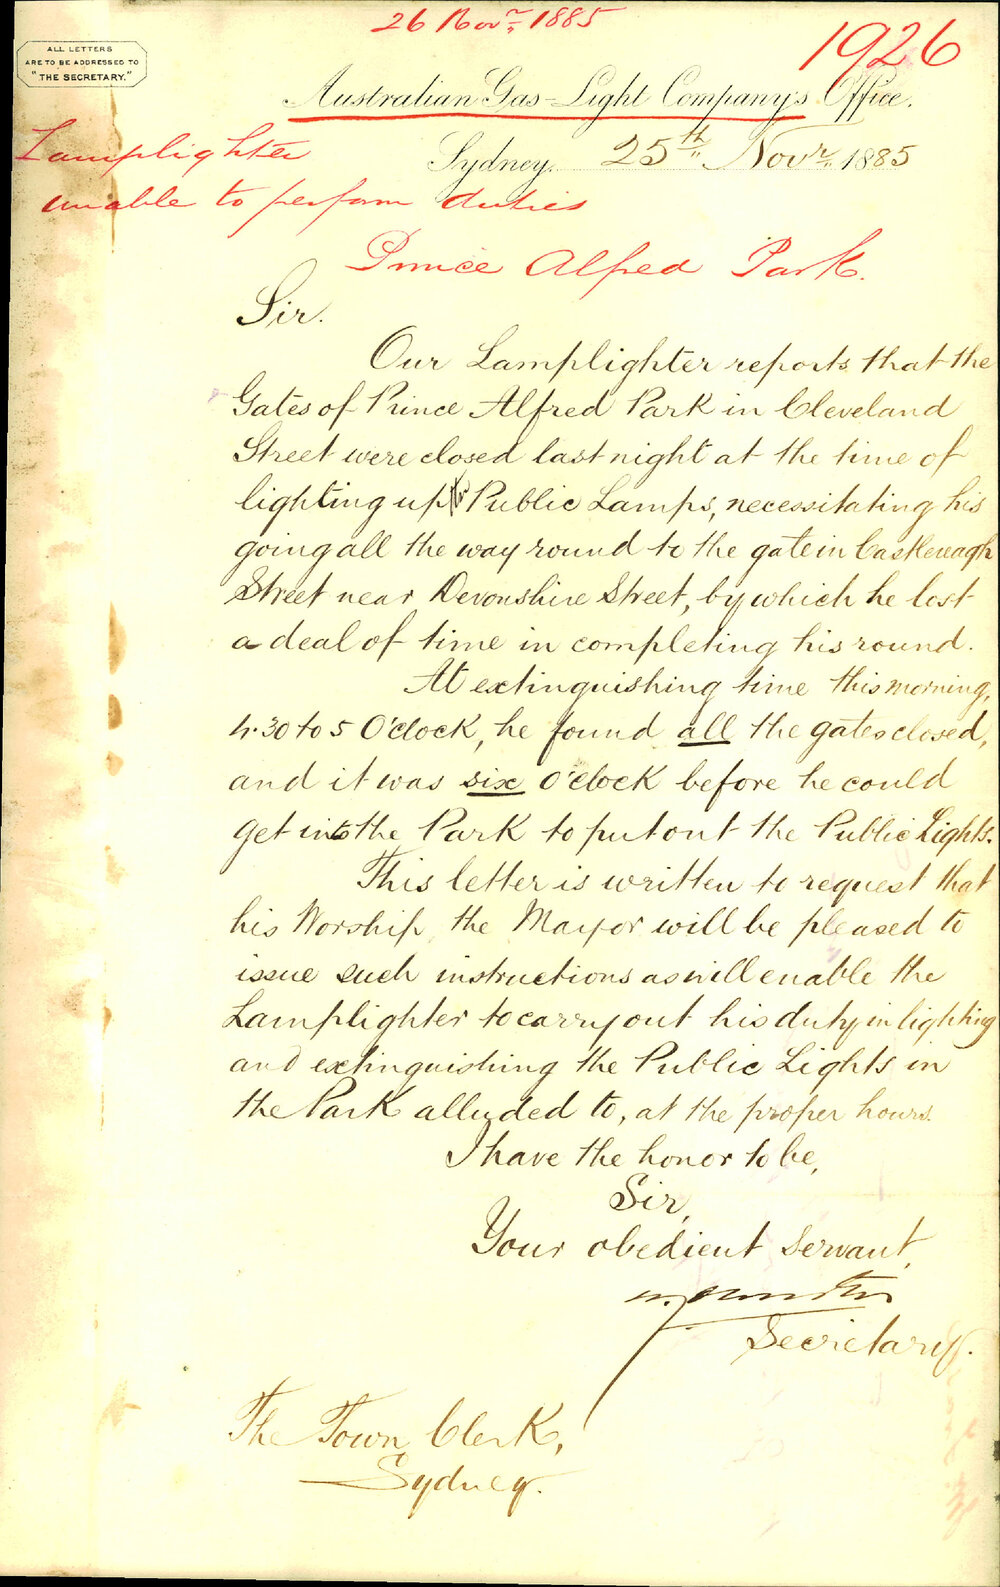 26 Novr. 1885
1926
ALL LETTERS
ARE TO BE ADDRESSED TO
"THE SECRETARY."
Australian Gas-Light Company's Office.
Lamplighter
unable to perform duties
Sydney. 25th Novr. 1885
Prince Alfred Park.
Sir.
Our Lamplighter reports that the
Gates of Prince Alfred Park in Cleveland
Street were closed last night at the time of
lighting up Public Lamps, necessitating his
going all the way round to the gate in Castlereagh
Street near Devonshire Street, by which he lost
a deal of time in completing his round.
At extinguishing time this morning,
4.30 to 5 O'clock, he found all the gates closed,
and it was six o'clock before he could
get into the Park to put out the Public Lights.
This letter is written to request that
his Worship the Mayor will be pleased to
issue such instructions as will enable the
Lamplighter to carry out his duty in lighting
and extinguishing the Public Lights in
the Park alluded to, at the proper hours.
I have the honor to be,
Sir,
Your obedient servant,
Secretary.
The Town Clerk,
Sydney.